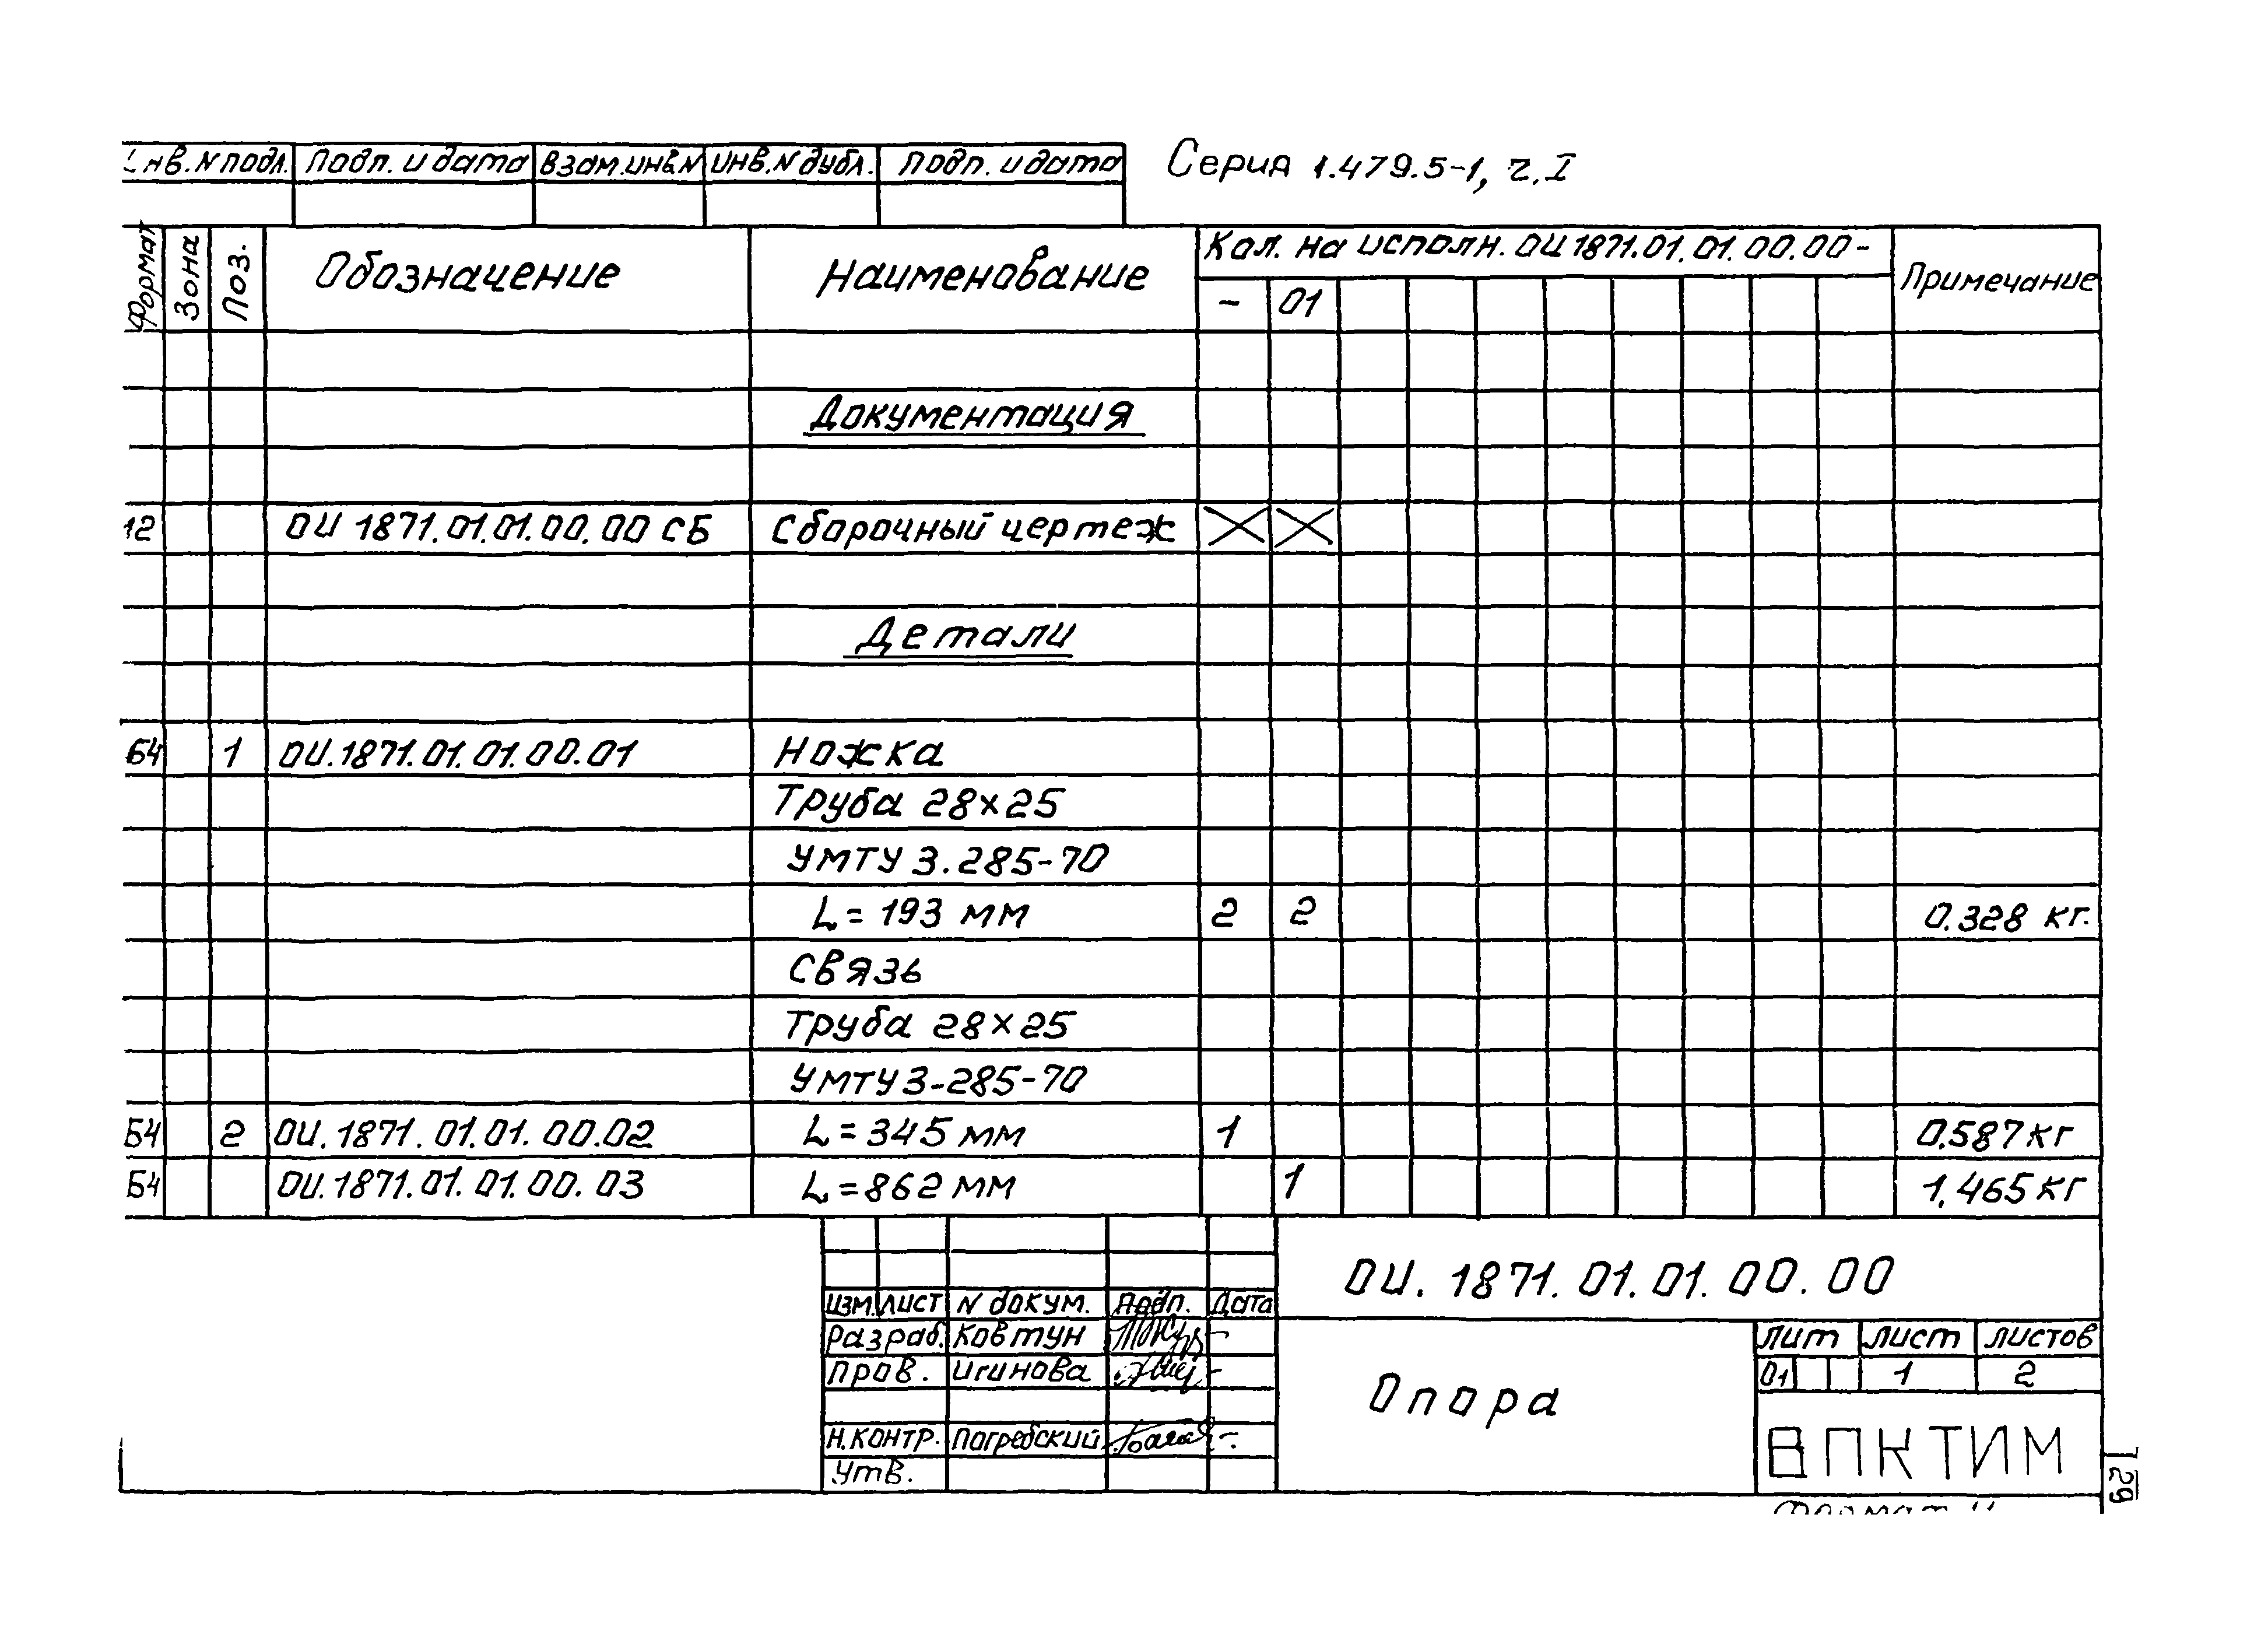 Инв. N подл. Подп. и дата Взам. инв. N Инв. N дубл. Подп. и дата Серия 1.479.5-1, ч. I
Формат Зона Поз. Обозначение Наименование Кол. на исполн. ОИ 1871.01.01.00.00- Примечание
- 01
Документация
12 ОИ 1871.01.01.00.00 СБ Сборочный чертеж
Детали
Б4 1 ОИ.1871.01.01.00.01 Ножка
Труба 28×25
УМТУ 3.285-70
L = 193 мм 2 2 0.328 кг.
Связь
Труба 28×25
УМТУ 3-285-70
Б4 2 ОИ.1871.01.01.00.02 L = 345 мм 1 0.587 кг
Б4 ОИ.1871.01.01.00.03 L = 862 мм 1 1,465 кг
ОИ. 1871. 01. 01. 00. 00
Изм. Лист N докум. Подп. Дата
Разраб. Ковтун
Пров. Игинова
Н. контр. Погребский
Утв.
Опора
Лит Лист Листов
01 1 2
ВПКТИМ
29
Формат